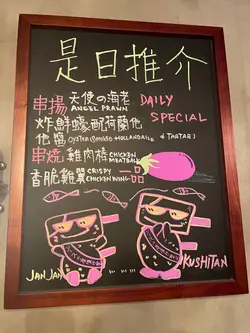 是日推介
串揚 天使の海老 DAILY
ANGEL PRAWN
炸鮮蠔配荷蘭他 SPECIAL
他醬 OYSTER (SMOKED HOLLANDAISE & TARTAR)
串燒 雞肉棒 CHICKEN MEATBALL
香脆雞翼 CRISPY CHICKEN WING 一品
JAN JAN
KUSHITAN